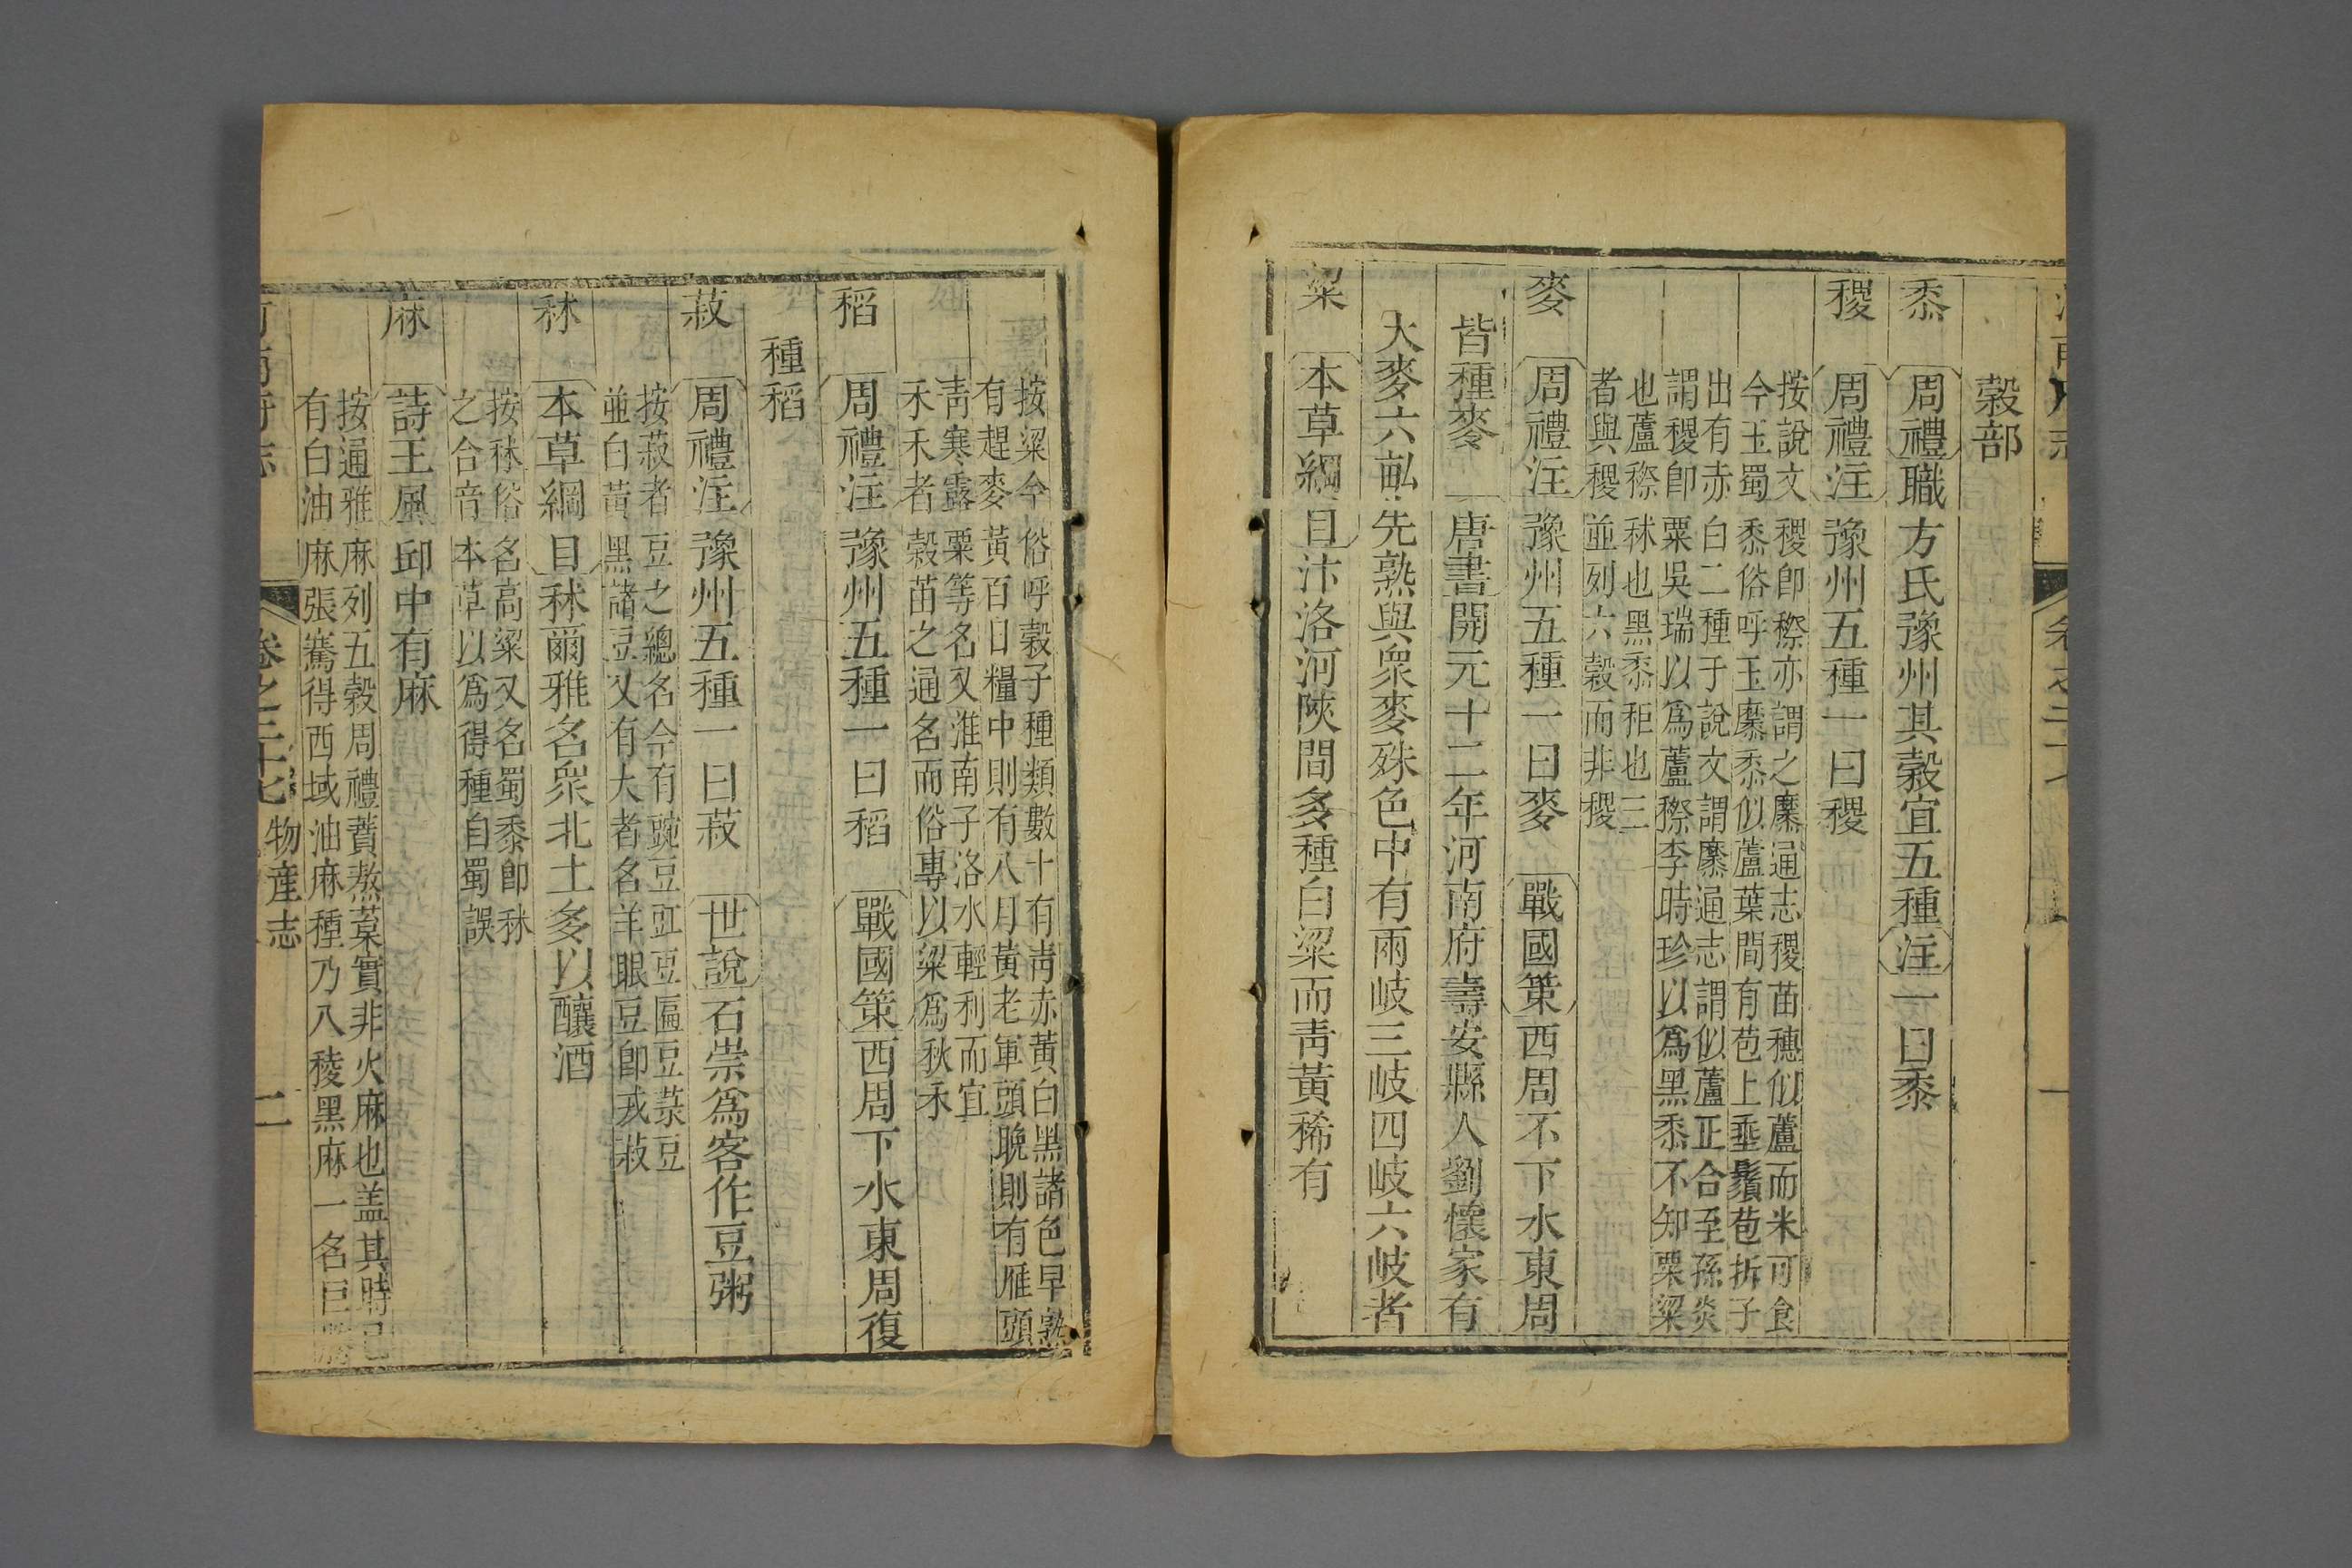 穀部
黍　周禮職方氏豫州其穀宜五種注一曰黍
稷　周禮注豫州五種一曰稷
按說文稷卽穄亦謂之穈通志稷苗穗似蘆而米可食
今玉蜀黍俗呼玉穈黍似蘆葉間有苞上垂鬚苞拆子
出有赤白二種于說文謂穈通志謂似蘆正合至孫炎
謂稷卽粟吳瑞以爲蘆穄李時珍以爲黑黍不知粟粱
也蘆穄秫也黑黍秬也三
者與稷並列六穀而非稷
麥　周禮注豫州五種一曰麥　戰國策西周不下水東周
皆種麥　唐書開元十二年河南府壽安縣人劉懷家有
大麥六畝先熟與眾麥殊色中有兩岐三岐四岐六岐者
粱　本草綱目汴洛河陝間多種白粱而靑黃稀有
按粱今俗呼穀子種類數十有靑赤黃白黑諸色早熟
有趕麥黃百日糧中則有八月黃老軍頭晚則有雁頭
靑寒露粟等名又淮南子洛水輕利而宜
禾禾者穀苗之通名而俗專以粱爲秋禾
稻　周禮注豫州五種一曰稻　戰國策西周下水東周復
種稻
菽　周禮注豫州五種一曰菽　世說石崇爲客作豆粥
按菽者豆之總名今有豌豆豇豆匾豆菉豆
並白黃黑諸豆又有大者名羊眼豆卽戎菽
秫　本草綱目秫爾雅名眾北土多以釀酒
按秫俗名高粱又名蜀黍卽秫
之合音本草以爲得種自蜀誤
麻　詩王風邱中有麻
按通雅麻列五穀周禮蕡熬菒實非火麻也盖其時已
有白油麻張騫得西域油麻種乃八稜黑麻一名巨勝
卷之二十七　物産志　二